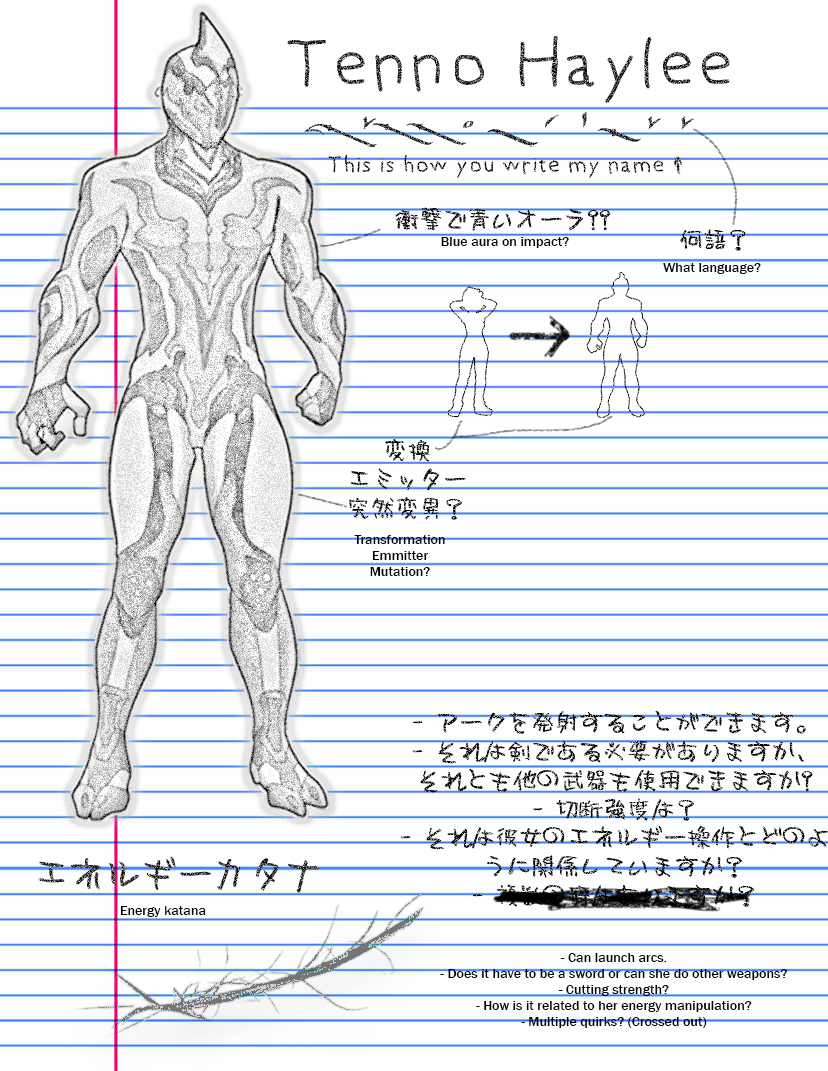 Tenno Haylee
This is how you write my name ↑
衝撃で青いオーラ??
Blue aura on impact?
何語?
What language?
変換
エミッター
突然変異?
Transformation
Emmitter
Mutation?
- アークを発射することができます。
- それは剣である必要がありますか、
それとも他の武器も使用できますか?
- 切断強度は?
- それは彼女のエネルギー操作とどのよ
うに関係していますか?
エネルギーカタナ
Energy katana
- Can launch arcs.
- Does it have to be a sword or can she do other weapons?
- Cutting strength?
- How is it related to her energy manipulation?
- Multiple quirks? (Crossed out)